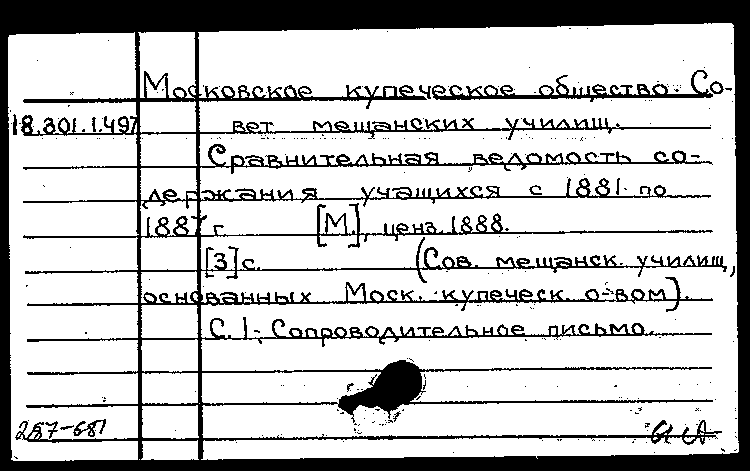 Московское купеческое общество. Со-
18.301.1.497 вет мещанских училищ.
Сравнительная ведомость со-
держания учащихся с 1881 по
1887 г. [М.], ценз. 1888.
[3] с. (Сов. мещанск. училищ,
основанных Моск. купеческ. о-вом).
С. 1: Сопроводительное письмо.
287-681